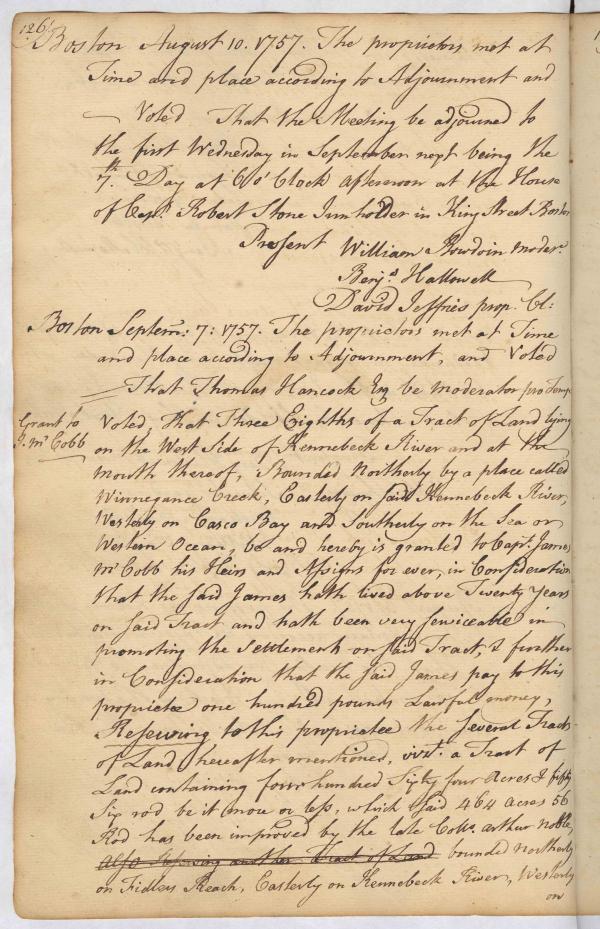 126
Boston August 10. 1757. The proprietors met at
Time and place according to Adjournment and
Voted That the Meeting be adjourned to
the first Wednesday in September next being the
7.th Day at 6 o'Clock afternoon at the House
of Capt. Robert Stone Innholder in King Street Boston
Present William Bowdoin moder.r
Benj.a Hallowell
David Jeffries prop. Cl:
Boston Septem.r 7: 1757. The proprietors met at Time
and place according to Adjournment, and Voted
That Thomas Hancock Esq be moderator pro Temp
Grant to
J. mc Cobb
Voted, that Three Eighths of a Tract of Land lying
on the West Side of Kennebeck River and at the
mouth thereof, Bounded Northerly by a place called
Winnegance Creek, Easterly on said Kennebeck River,
Westerly on Casco Bay and Southerly on the Sea or
Western Ocean, be and hereby is granted to Capt. James
mc Cobb his Heirs and Assigns for ever, in Consideration
that the said James hath lived above Twenty Years
on said Tract and hath been very serviceable in
promoting the Settlement on said Tract, & further
in Consideration that the said James pay to this
proprietee one hundred pounds Lawful money,
Reserving to this proprietee the several Tracts
of Land hereafter mentioned, vizt. a Tract of
Land containing four hundred Sixty four Acres & fifty
Six rod be it more or less, which said 464 Acres 56
Rod has been improved by the late Collo. Arthur Noble,
also reserving another Tract of Land bounded Northerly
on Fidlers Reach, Easterly on Kennebeck River, Westerly
on